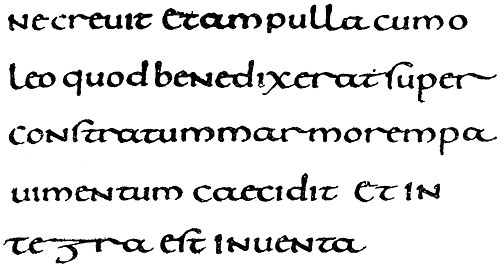 necreuit et ampulla cum o
leo quod benedixerat super
constratum marmorem pa
uimentum caecidit et in
tegra est inuenta